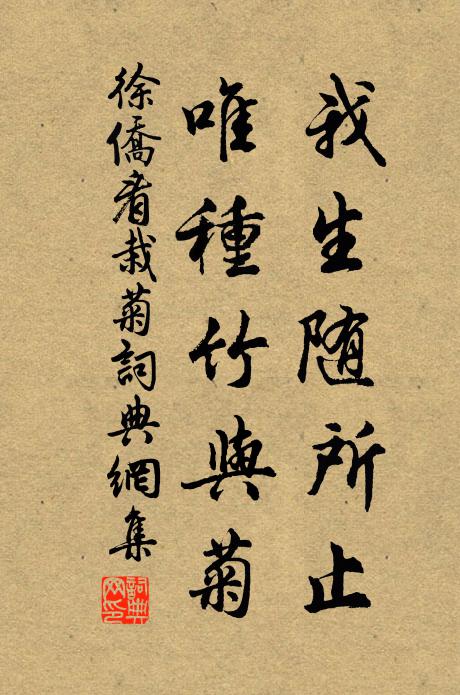 我生随所止
唯種竹與菊
徐僑看栽菊詞典網集
詞典网印